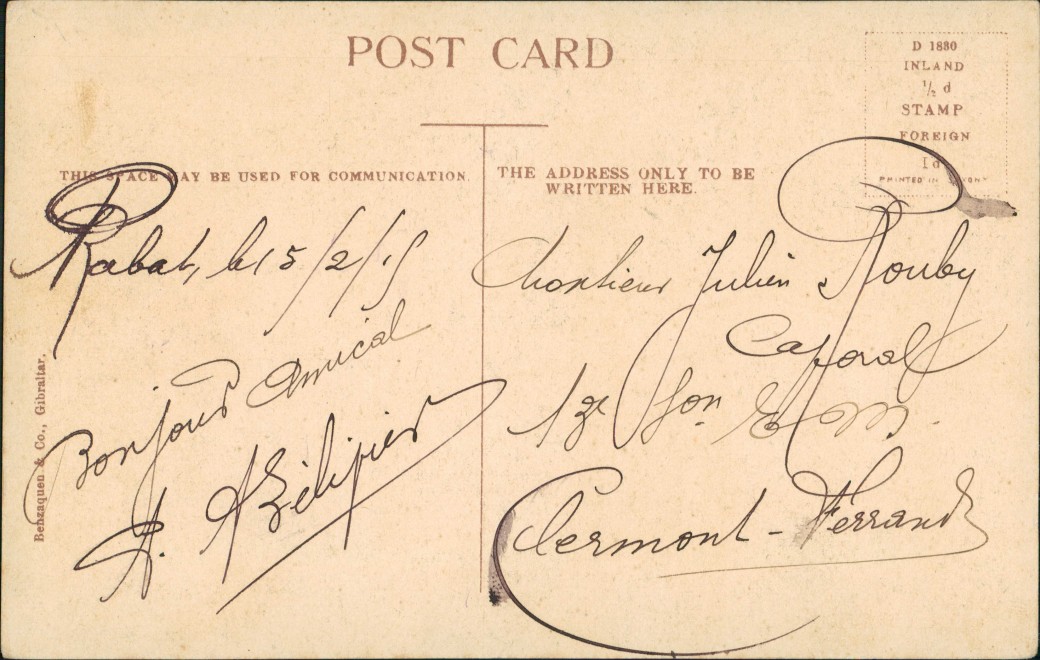 POST CARD
D 1880
INLAND
½ d
STAMP
FOREIGN
1d
PRINTED IN
THIS SPACE MAY BE USED FOR COMMUNICATION.
THE ADDRESS ONLY TO BE
WRITTEN HERE.
Rabat, le 15/2/15
Bonjour Amical
A.
Monsieur Julien Rouby
Caporal
13e Son E M.
Clermont-Ferrand
Benzaquen & Co., Gibraltar.